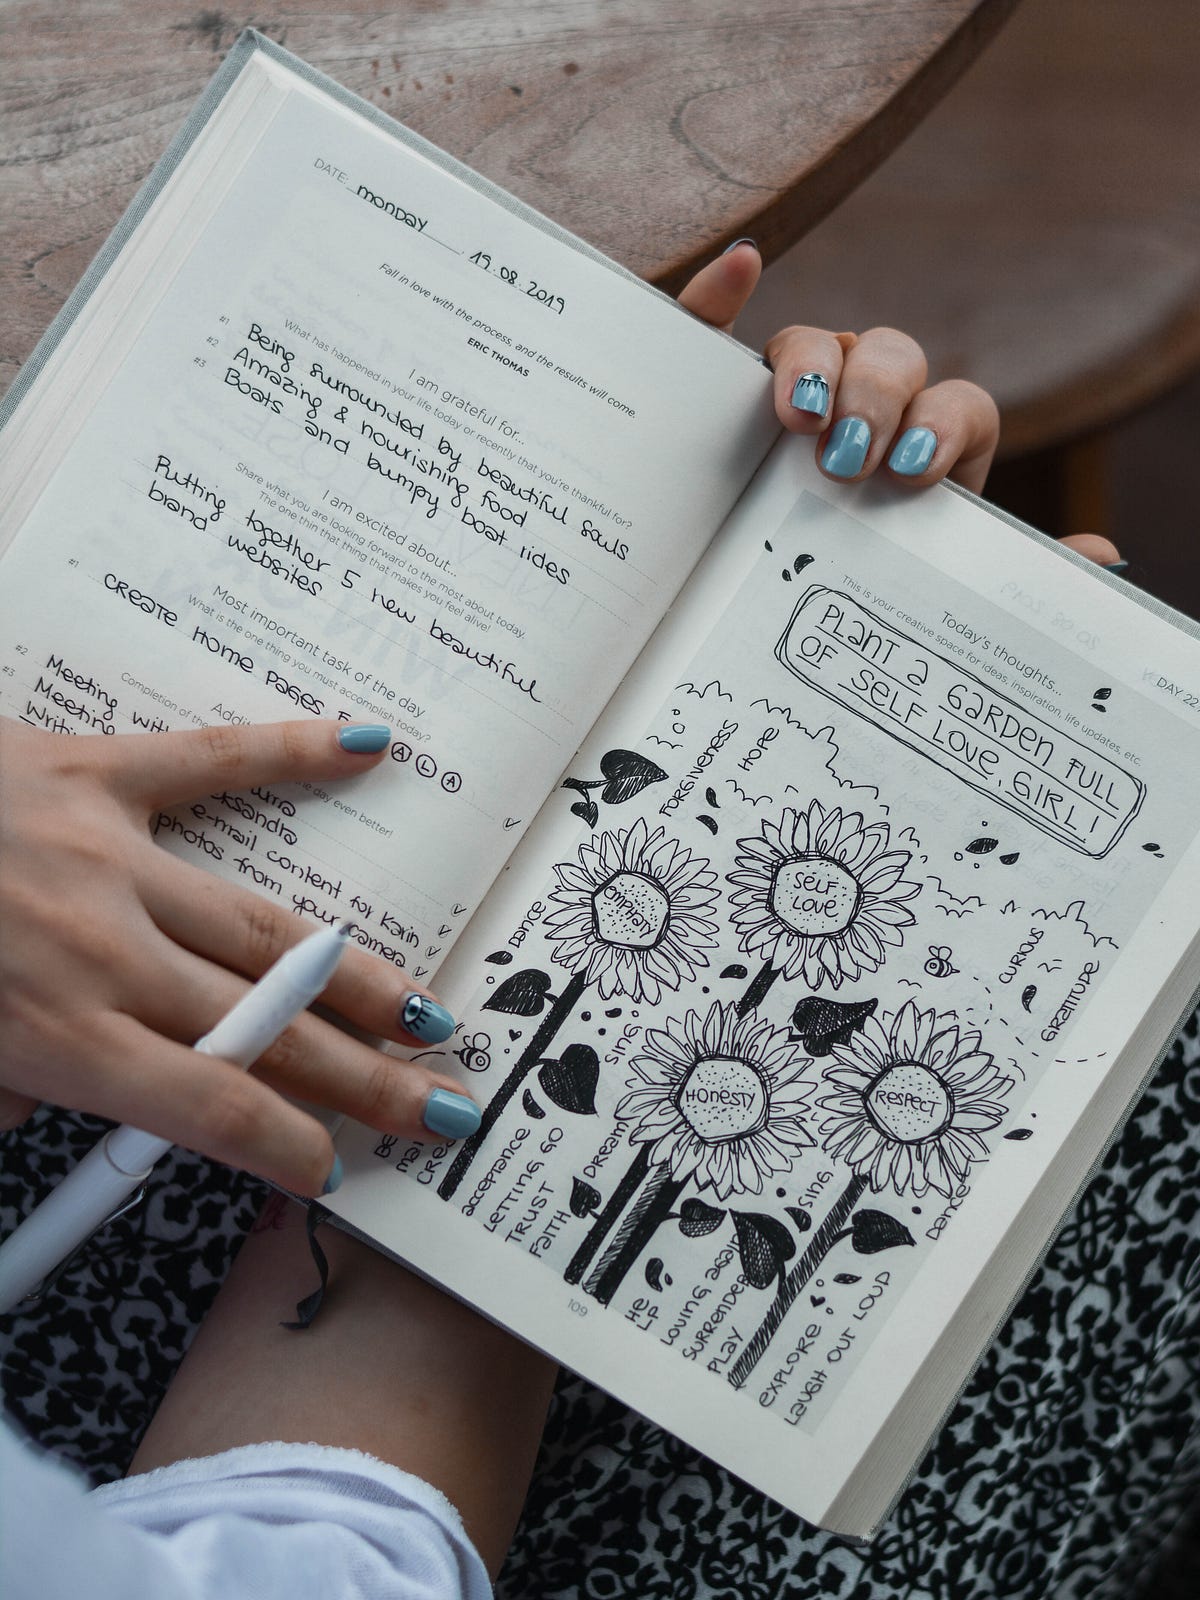 DATE: monday 19.08.2019
Fall in love with the process, and the results will come.
ERIC THOMAS
I am grateful for...
What has happened in your life today or recently that you're thankful for?
#1 Being surrounded by beautiful souls
#2 Amazing & nourishing food
#3 Boats and bumpy boat rides
I am excited about...
Share what you are looking forward to the most about today.
The one thin that thing that makes you feel alive!
Putting together 5 new beautiful
brand websites
Most important task of the day
What is the one thing you must accomplish today?
#1 CREATE HOME PAGES
ALA
Completion of the
the day even better!
#2 Meeting with
#3 Meeting
e-mail content for Karin
photos from your camera
DAY 22
Today's thoughts...
This is your creative space for ideas, inspiration, life updates, etc.
PLANT a GARDEN FULL
OF SELF LOVE, GIRL!
FORGIVENESS
HOPE
emphaty
SELF
LOVE
Dance
CURIOUS
GRATITUDE
SING
HONESTY
RESPECT
Dream
SING
Dance
acceptance
LETTING GO
TRUST
FaITH
HE
LP
LOVING again
SURRENDER
PLAY
EXPLORE
LaUGH OUT LOUD
109